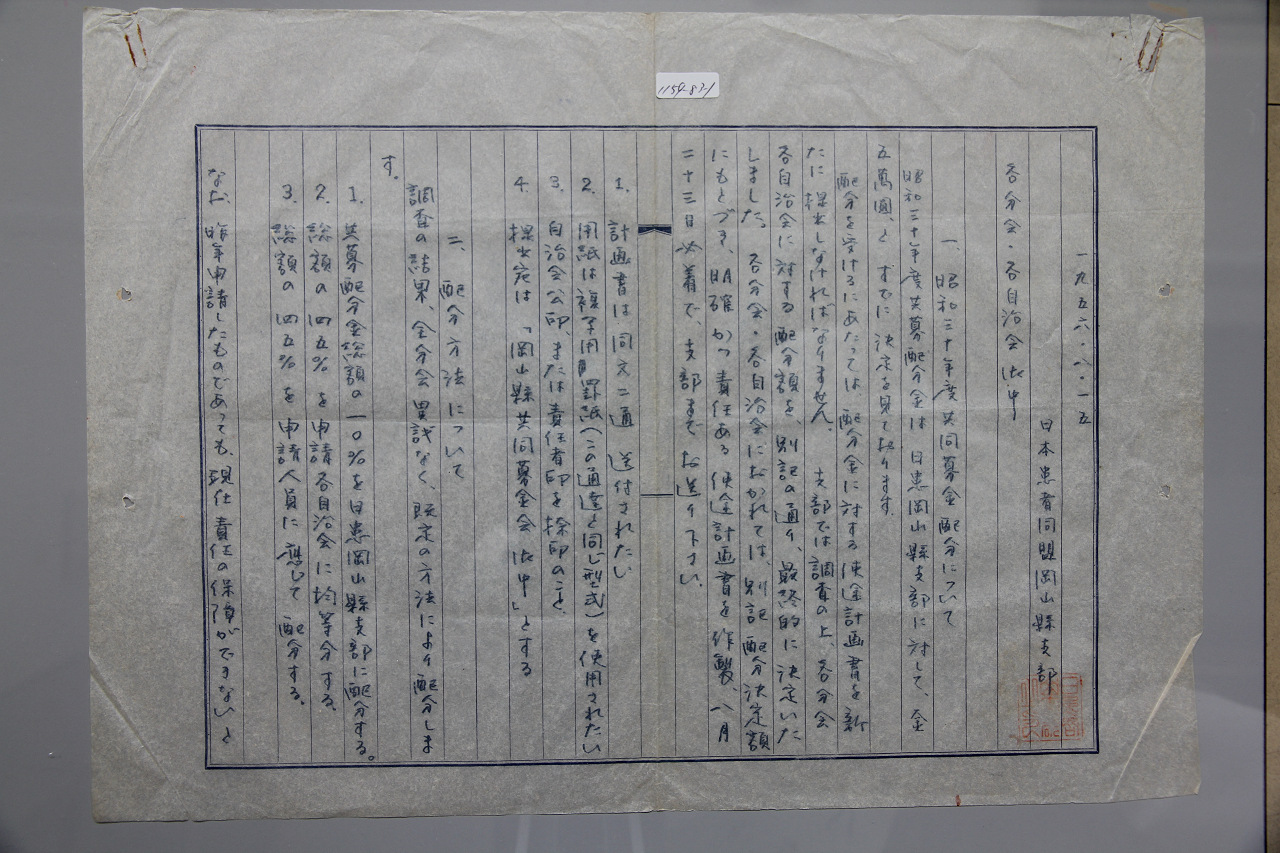 1154-87-1
一九五六・八・一五
日本患者同盟岡山縣支部
各分会・各自治会 御中
一、昭和三十年度共同募金配分について
昭和三十年度共募配分金は日患岡山縣支部に対して、金
五萬圓、と すでに決定を見て居ります。
配分を受けるにあたっては、配分金に対する使途計画書を新
たに提出しなければなりません。支部では調査の上、各分会
各自治会に対する配分額を、別記の通り、最終的に決定いた
しました。各分会・各自治会におかれては、別記配分決定額
にもとづき、明確かつ責任ある使途計画書を作製、八月
二十三日必着で、支部まで お送り下さい。
1. 計画書は同文二通 送付されたい
2. 用紙は複写用罫紙(この通達と同じ型式)を使用されたい
3. 自治会公印、または責任者印を捺印のこと、
4. 提出宛は「岡山縣共同募金会 御中」とする
二、配分方法について
調査の結果、全分会異議なく、既定の方法により配分しま
す。
1. 共募配分金総額の一〇%を日患岡山縣支部に配分する。
2. 総額の四五%を申請各自治会に均等分する、
3. 総額の四五%を申請人員に應じて 配分する、
なお、昨年申請したものであっても、現在 責任の保障ができないと